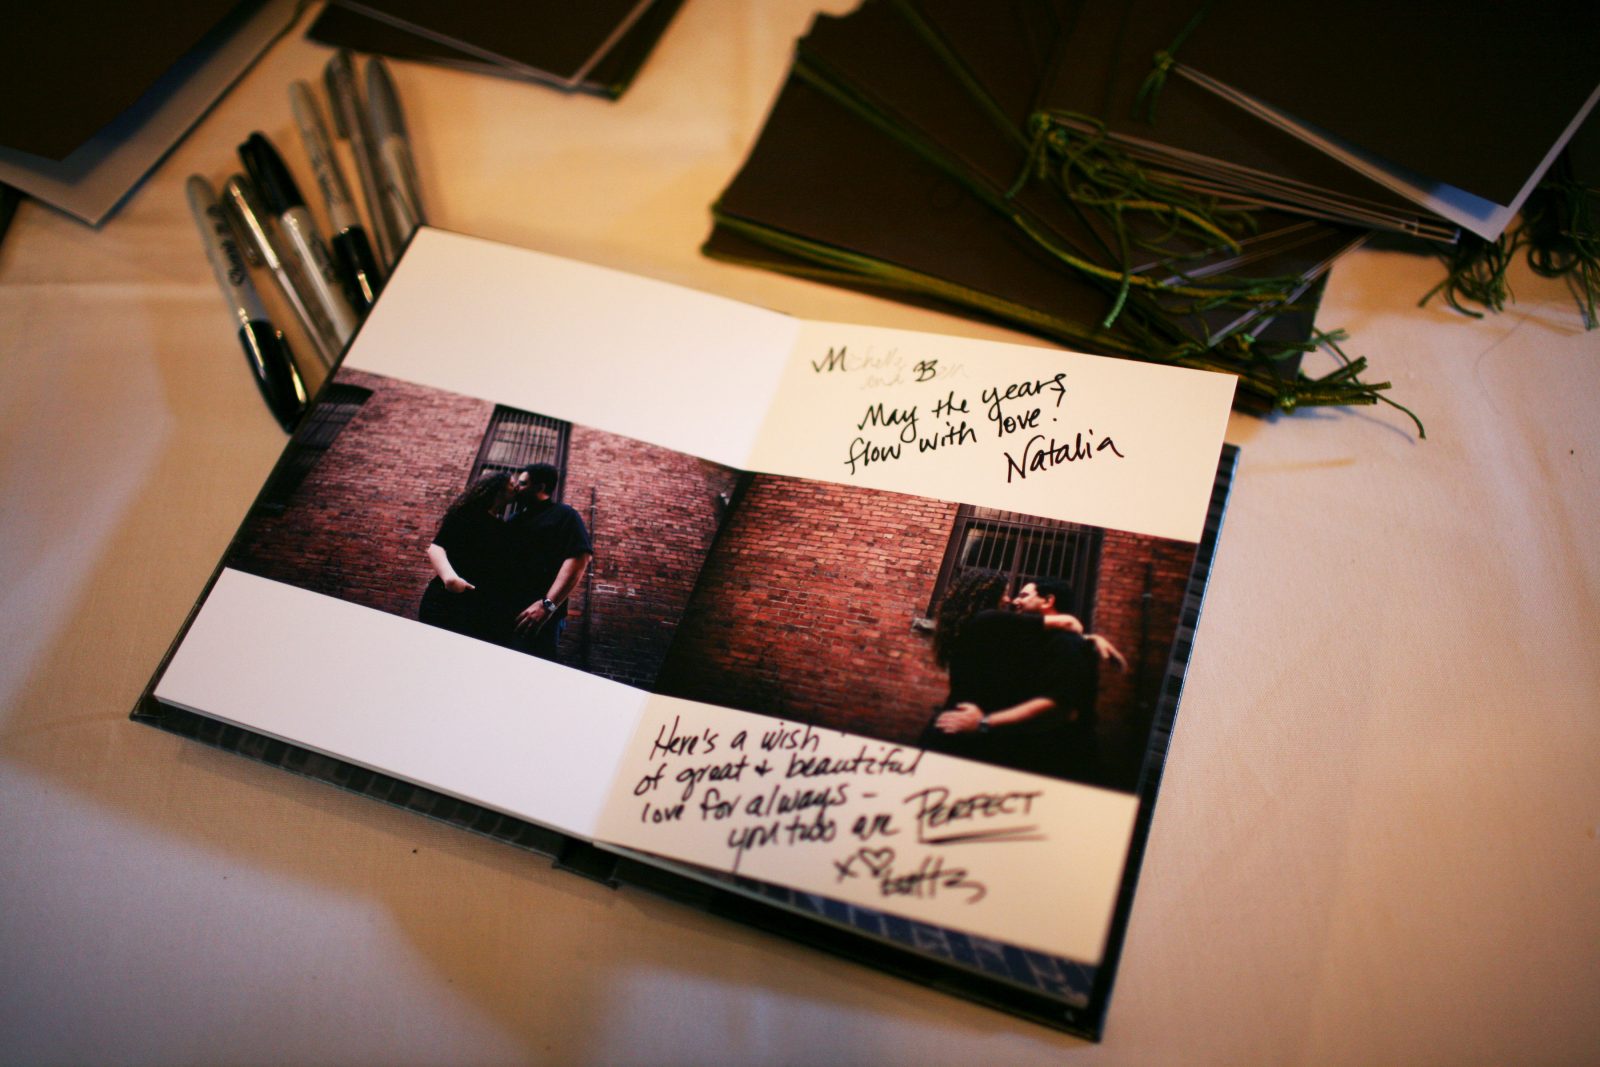 Michelle
and Ben
May the years
flow with love!
Natalia
Here's a wish
of great + beautiful
love for always -
you two are PERFECT
x♡
Sharpie